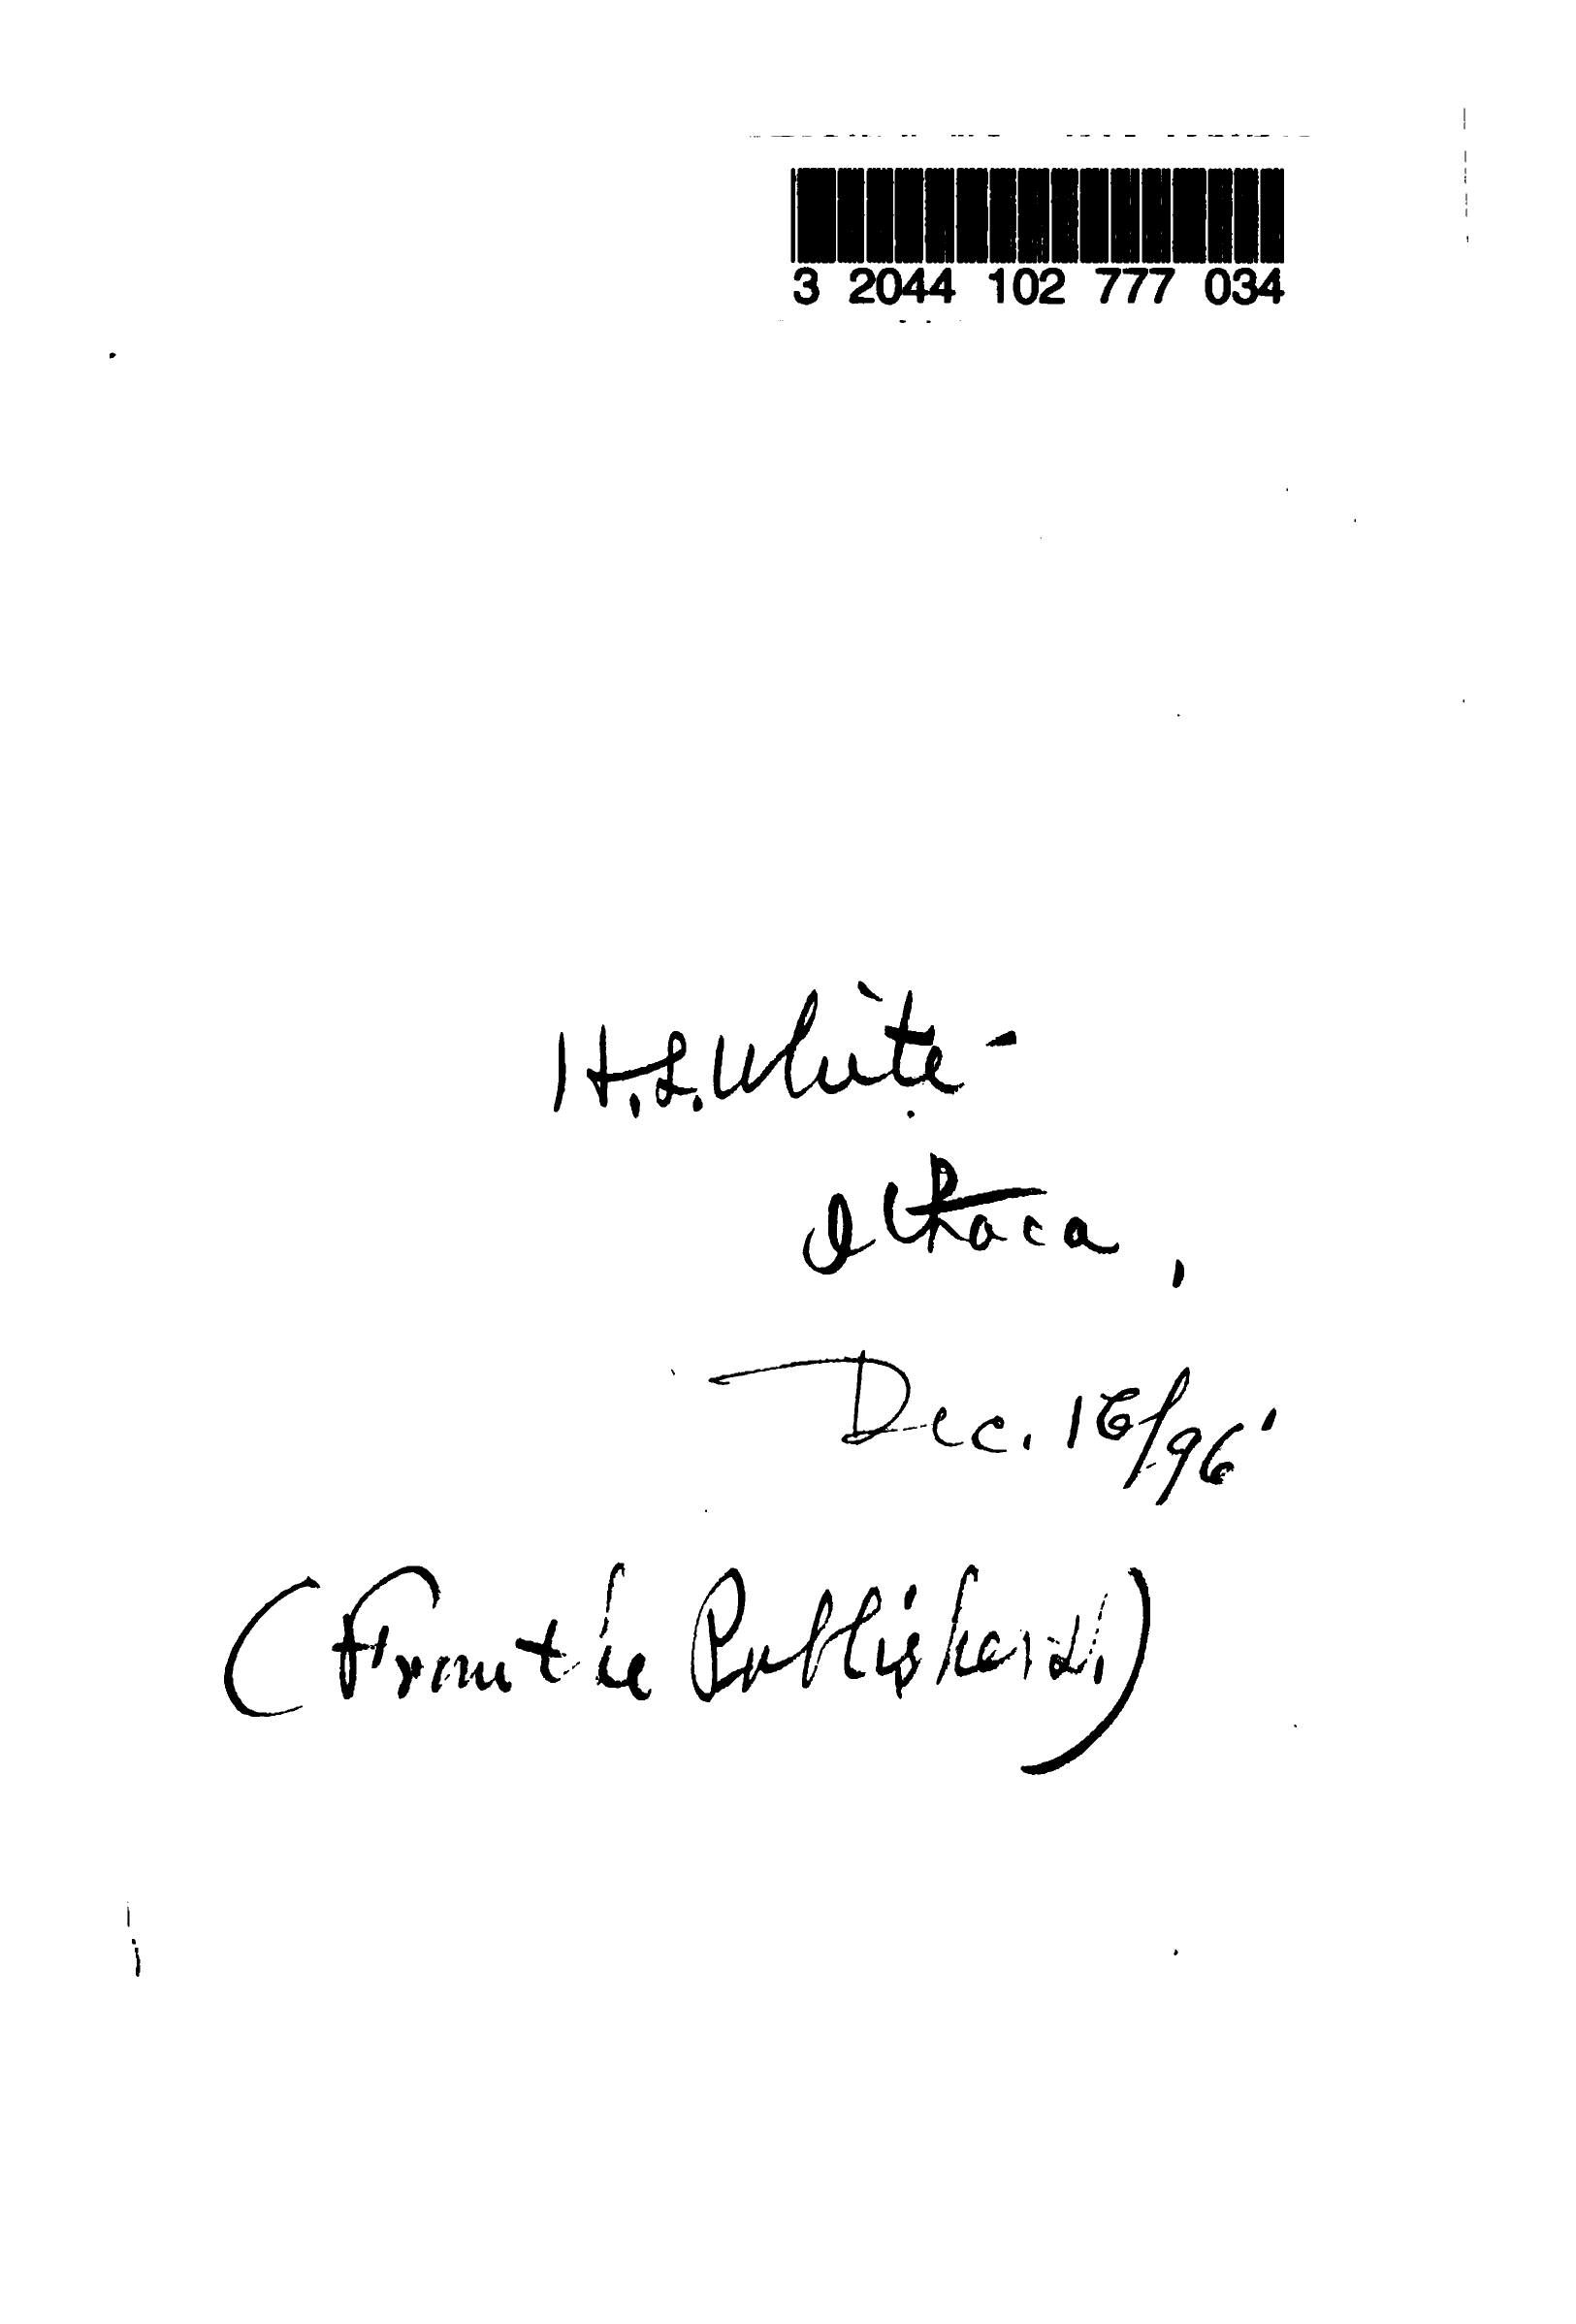 3 2044 102 777 034
H.S. White -
Ithaca,
Dec. 16/96'
(From the Publishers.)